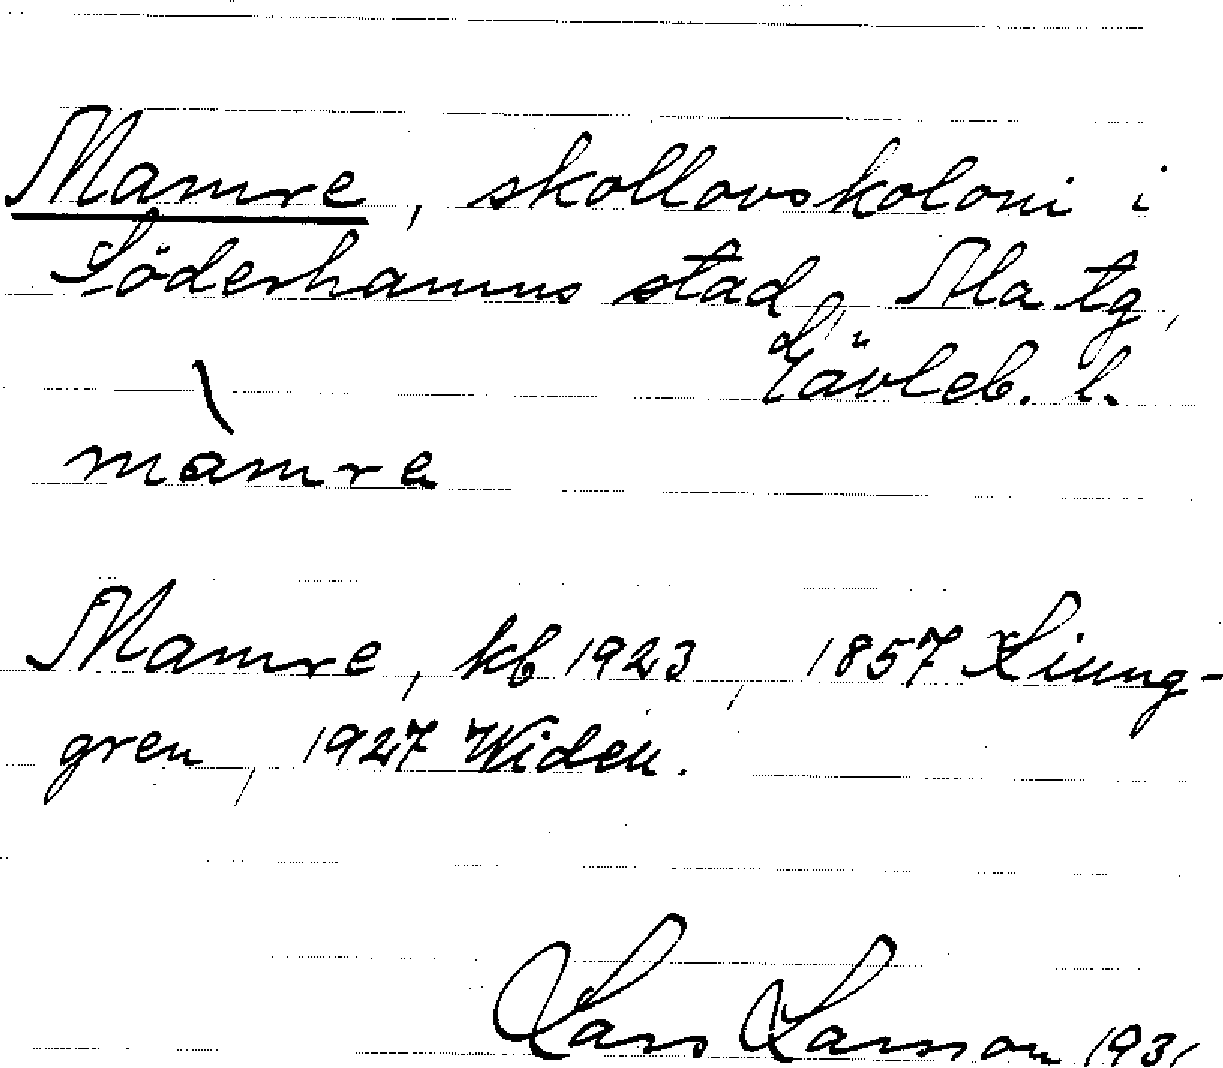 Mamre, skollovskoloni i
Söderhamns stad, Ala tg,
Gävleb. l.
màmre
Mamre, kb 1923, 1857 Liung-
gren, 1927 Widen.
Lars Larsson 1931